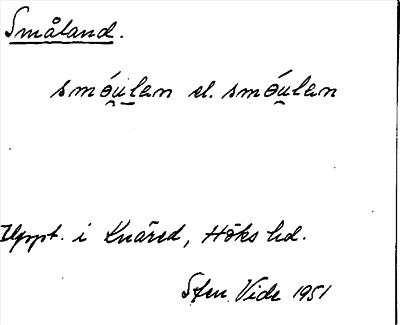 Småland.
smóu̯lan el. smóu̯lan
Uppt. i Knäred, Höks hd.
Sten Vide 1951